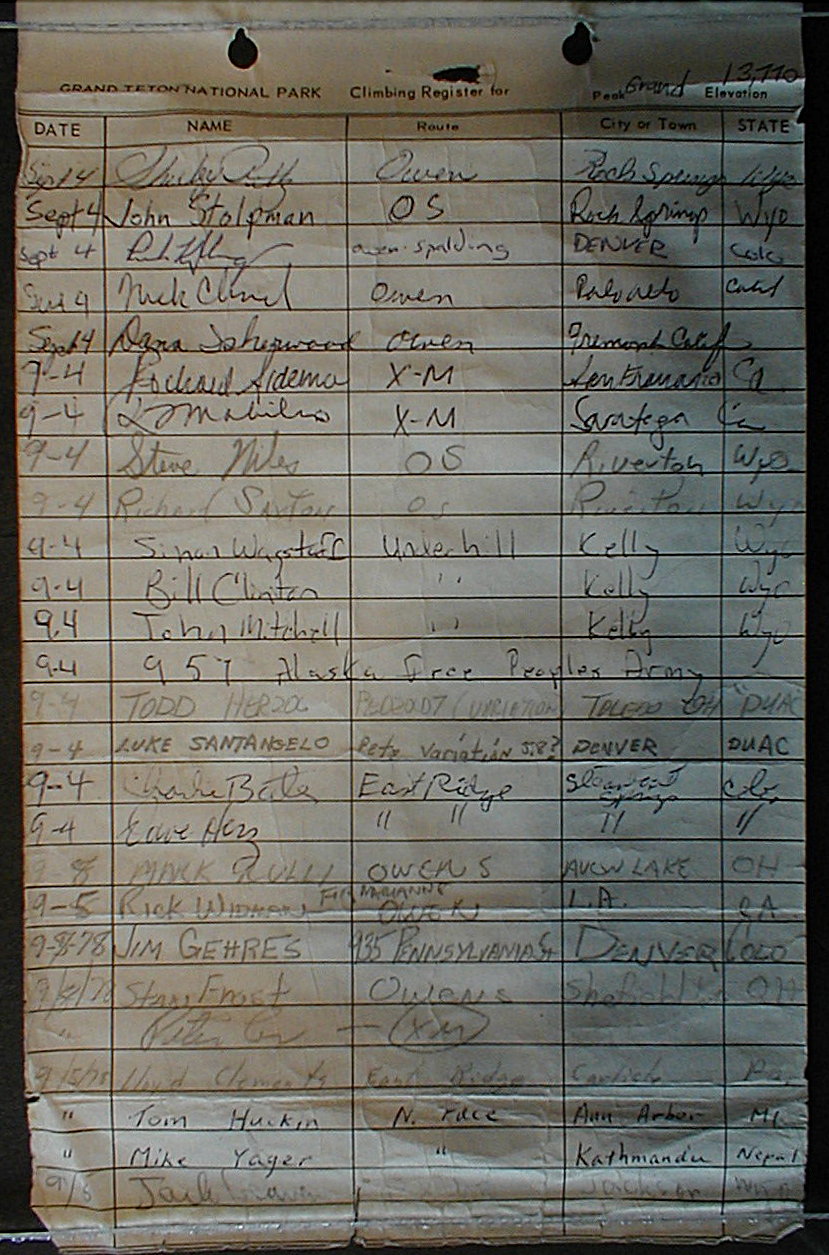 GRAND TETON NATIONAL PARK Climbing Register for Peak Grand Elevation 13,770
DATE NAME Route City or Town STATE
Sept 4 Shirley Owen Rock Springs Wyo
Sept 4 John Stolpman OS Rock Springs Wyo
Sept 4 owen-spalding DENVER Colo
Nick Clinch Owen Palo Alto Calif
Sept 4 Dana Isherwood Owen Fremont Calif
9-4 X-M San Francisco Ca
9-4 X-M Saratoga Ca
9-4 Steve Niles OS Riverton Wyo
9-4 Richard Saxton OS Riverton Wyo
9-4 Simon Wagstaff Underhill Kelly Wyo
9-4 Bill Clinton " Kelly Wyo
9.4 John Mitchell " Kelly Wyo
9.4 957 Alaska Free Peoples Army
9-4 TODD HERZOG (VARIATION) TOLEDO OH "DUAC
9-4 LUKE SANTANGELO Petz variation 5.8? DENVER DUAC
9-4 Charlie East Ridge Steamboat Springs Colo.
9-4 " " " "
9-8 MARK OWENS AVON LAKE OH
9-5 RICK OWEN L.A. CA
9-8-78 JIM GEHRES 935 PENNSYLVANIA St DENVER COLO
9/8/78 Stan Frost Owens OH
" Peter — XM
9/5/78 Lloyd Clements East Ridge Carlisle Pa.
" Tom Huckin N. Face Ann Arbor MI
" Mike Yager " Kathmandu Nepal
9/8 Jack Jackson